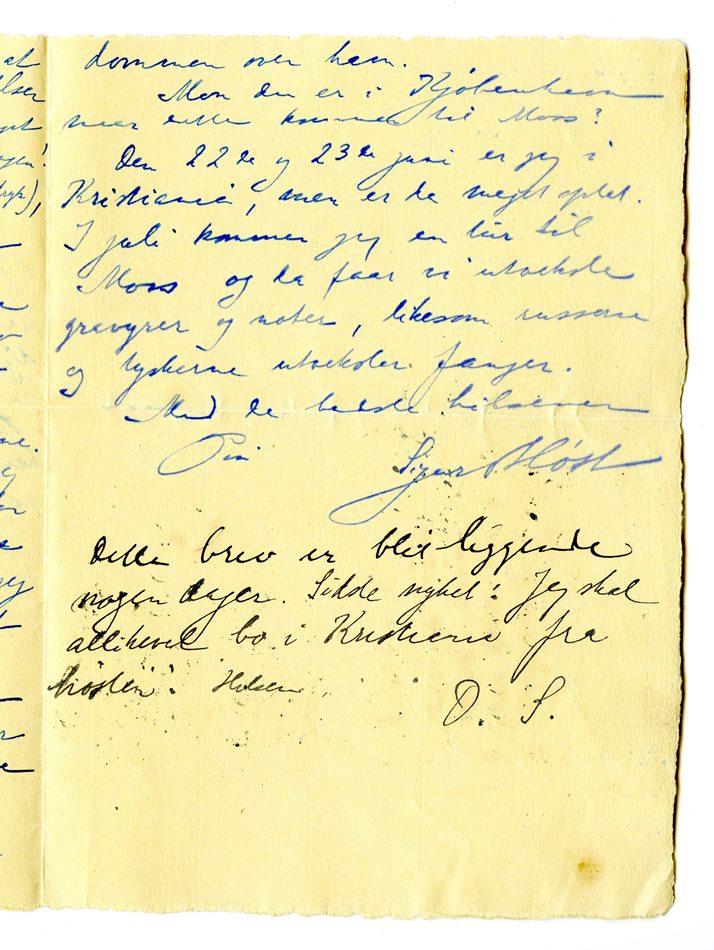 dommen over ham.
Mon du er i Kjøbenhavn
naar dette kommer til Moss?
Den 22de og 23de juni er jeg i
Kristiania, men er da meget optat.
I juli kommer jeg en tur til
Moss og da faar vi utveksle
gravyrer og noter, likesom russerne
og tyskerne utveksler fanger.
Med de bedste hilsener
Din
Sigurd Høst
Dette brev er blit liggende
nogen dager. Sidste nyhet: Jeg skal
allikevel bo i Kristiania fra
høsten. Hilsen
D. S.
at
ne.
og